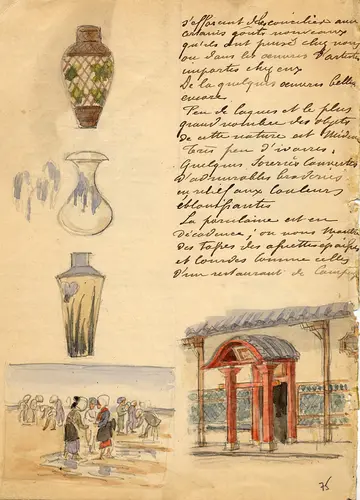 s'efforcent de se concilier avec
certains goûts nouveaux
qu'ils ont puisé chez nous
ou dans les œuvres d'artistes
importés chez eux
De là quelques œuvres belles
encore.
Peu de laques et le plus
grand nombre des objets
de cette nature est
Très peu d'ivoires.
Quelques soieries couvertes
d'admirables broderies
en relief aux couleurs
éblouissantes
La porcelaine est en
décadence; on nous montre
des tasses des assiettes épaisses
et lourdes comme celles
d'un restaurant de
75